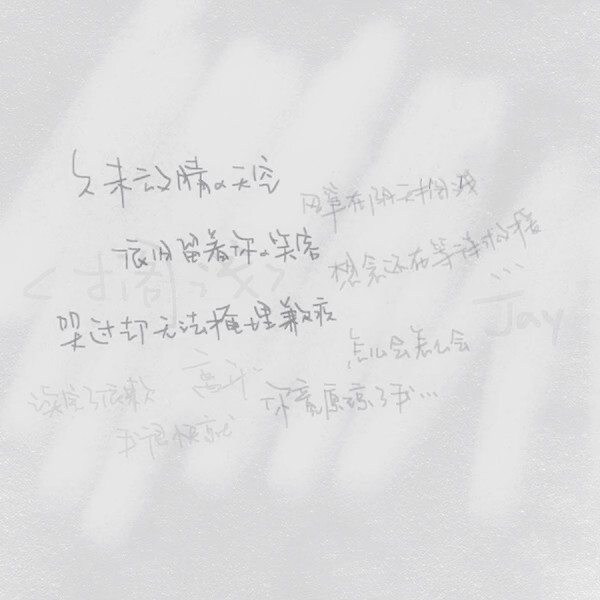 久未放晴的天空
依旧留着你的笑容
哭过却无法掩埋歉疚
风筝在阴天搁浅
想念还在等待救援
...
<搁浅>
Jay
怎么会怎么会
你竟原谅了我...
读完了依赖
我很快就
离开..